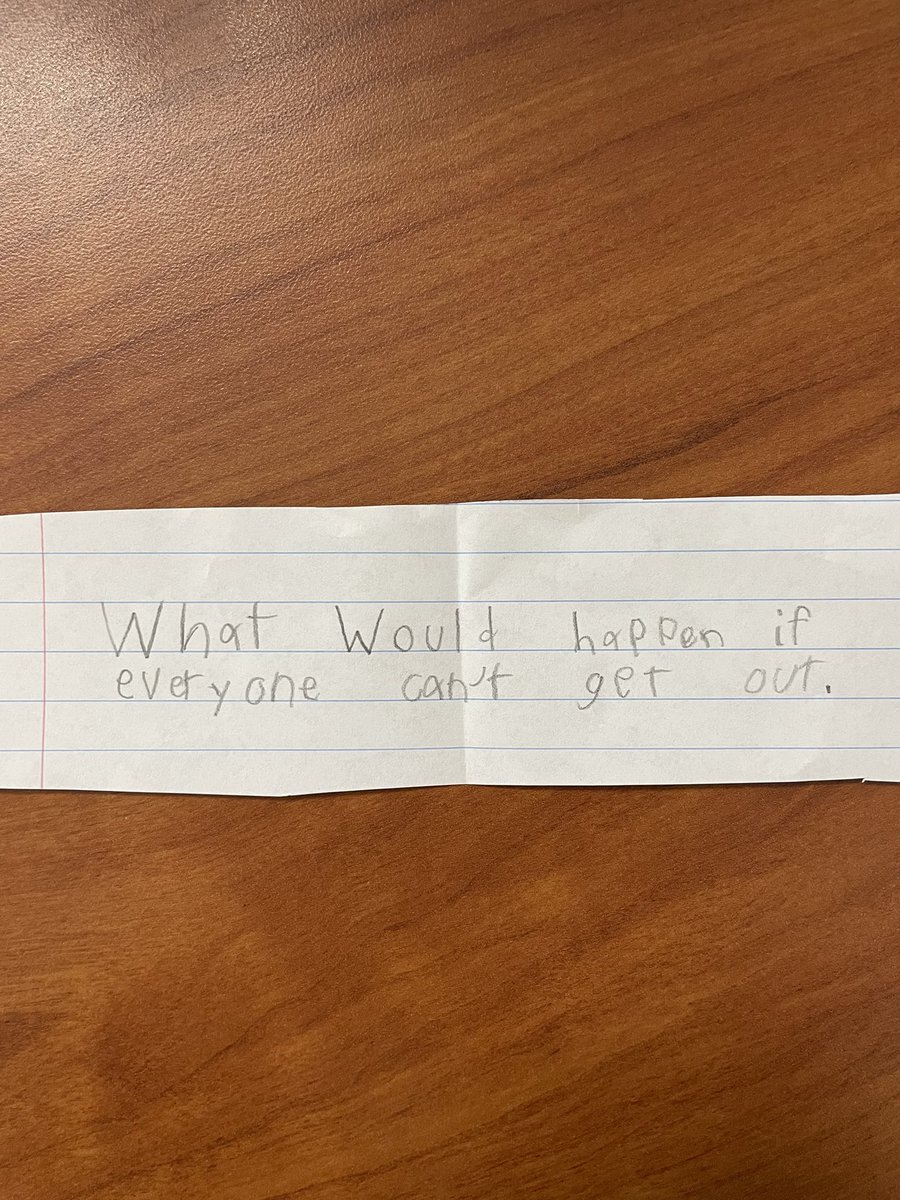 What Would happen if
everyone can't get out.